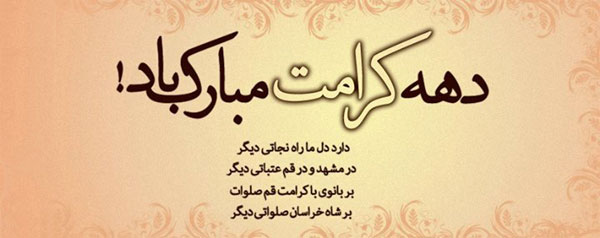 دهه کرامت مبارک باد!
دارد دل ما راه نجاتی دیگر
در مشهد و در قم عتباتی دیگر
بر بانوی با کرامت قم صلوات
بر شاه خراسان صلواتی دیگر